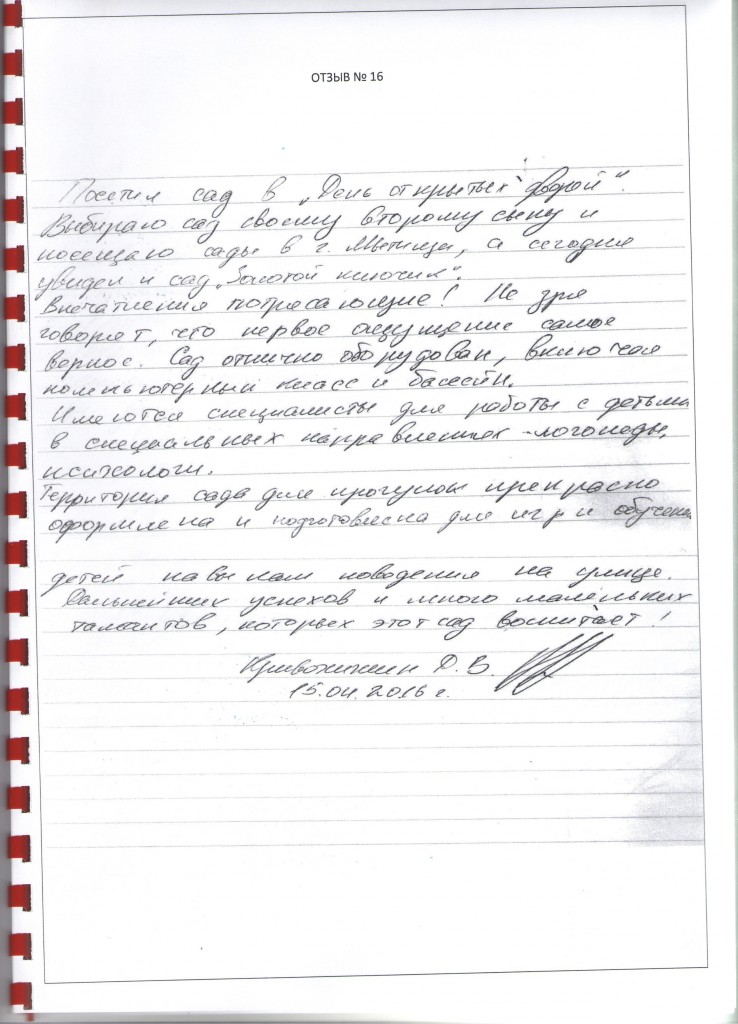 ОТЗЫВ № 16
Посетил сад в „День открытых дверей“.
Выбираю сад своему второму сыну и
посещаю сады в г. Мытищи, а сегодня
увидел и сад „Золотой ключик“.
Впечатления потресающие! Не зря
говорят, что первое ощущение самое
верное. Сад отлично оборудован, включая
компьютерный класс и бассейн.
Имеются специалисты для работы с детьми
в специальных направлениях - логопеды,
психологи.
Территория сада для прогулок прекрасно
оформлена и подготовлена для игр и обучения
детей навыкам поведения на улице.
Дальнейших успехов и много маленьких
талантов, которых этот сад воспитает!
Д. В.
15.04.2016 г.